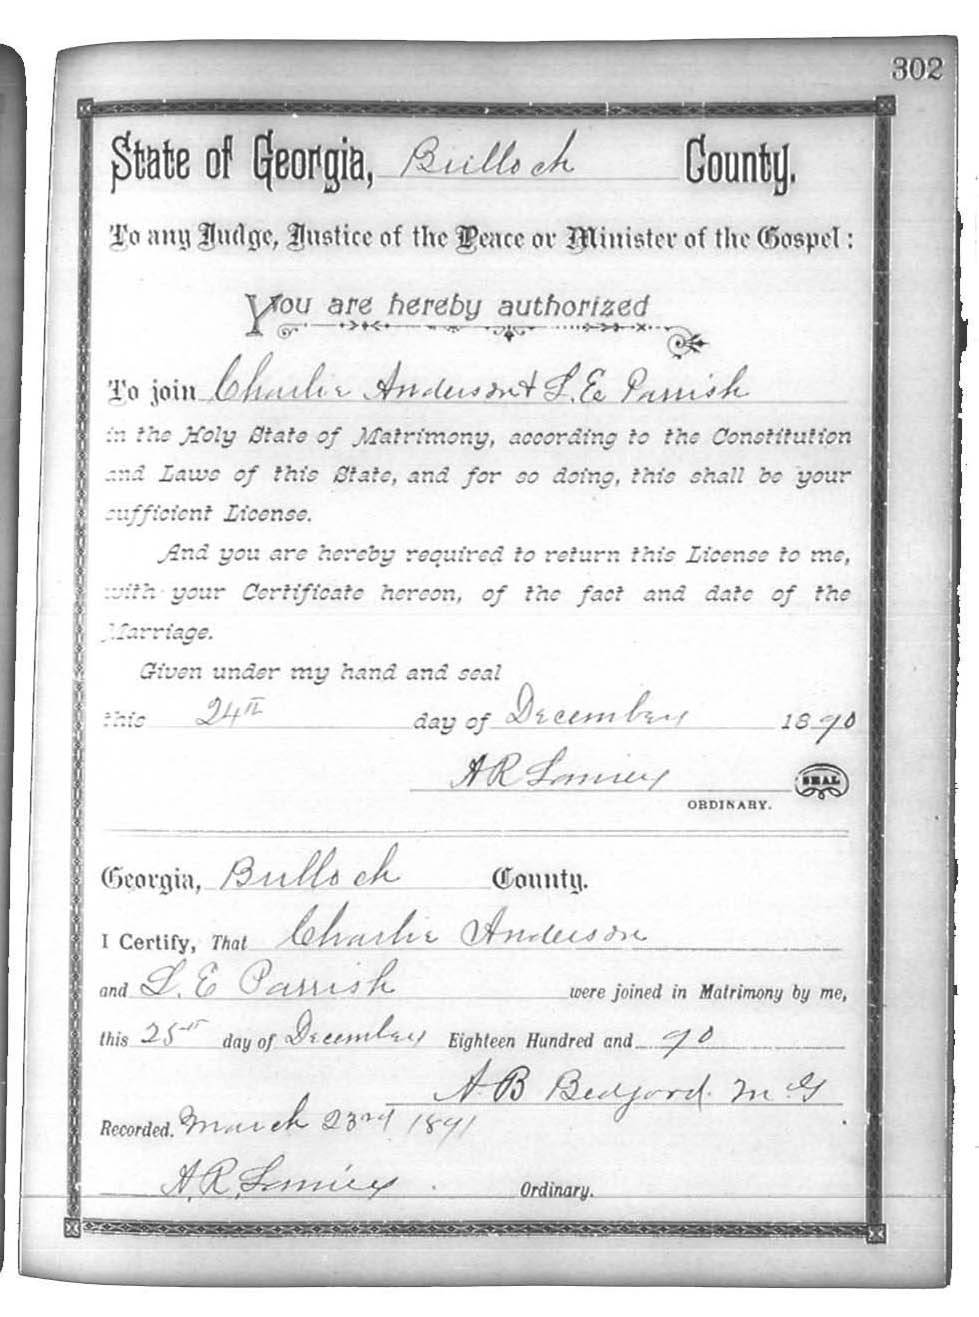 302
State of Georgia, Bulloch County.
To any Judge, Justice of the Peace or Minister of the Gospel:
You are hereby authorized
To join Charlie Anderson & L. E. Parrish
in the Holy State of Matrimony, according to the Constitution
and Laws of this State, and for so doing, this shall be your
sufficient License.
And you are hereby required to return this License to me,
with your Certificate hereon, of the fact and date of the
Marriage.
Given under my hand and seal
this 24th day of December 1890
A R Lanier SEAL
ORDINARY.
Georgia, Bulloch County.
I Certify, That Charlie Anderson
and L. E Parrish were joined in Matrimony by me,
this 25th day of December Eighteen Hundred and 90
A. B Bedford. M. G
Recorded. March 23rd 1891
A. R. Lanier Ordinary.